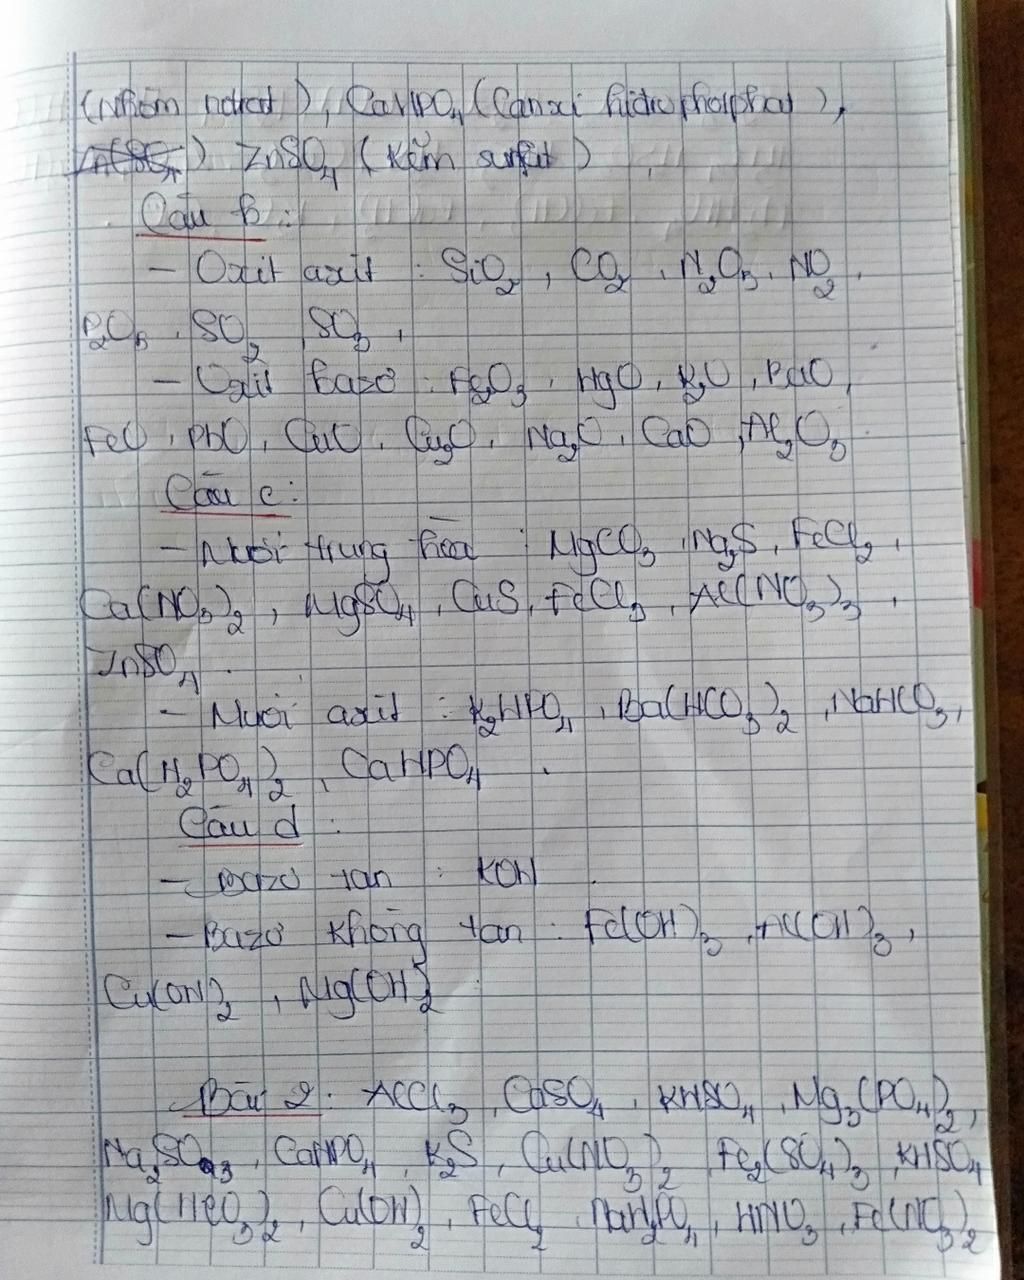 (Nhôm nitrat), CaHPO₄ (Canxi hidrophotphat),
ZnSO₄ (Kẽm sunfat)
Câu b:
- Oxit axit: SiO₂, CO₂, N₂O₅, NO₂,
P₂O₅, SO₂, SO₃,
- Oxit bazơ: Fe₂O₃, HgO, K₂O, BaO,
FeO, PbO, CuO, Cu₂O, Na₂O, CaO, Al₂O₃
Câu c:
- Muối trung hòa: MgCO₃, Na₂S, FeCl₂,
Ca(NO₃)₂, MgSO₄, CuS, FeCl₃, Al(NO₃)₃,
ZnSO₄.
- Muối axit: K₂HPO₄, Ba(HCO₃)₂, NaHCO₃,
Ca(H₂PO₄)₂, CaHPO₄.
Câu d:
- Bazơ tan: KOH.
- Bazơ không tan: Fe(OH)₃, Al(OH)₃,
Cu(OH)₂, Mg(OH)₂.
Bài 2: AlCl₃, CaSO₄, KHSO₄, Mg₃(PO₄)₂,
Na₂SO₃, CaHPO₄, K₂S, Cu(NO₃)₂, Fe₂(SO₄)₃, KHSO₄
Mg(HCO₃)₂, Cu(OH)₂, FeCl₂, NaH₂PO₄, HNO₃, Fe(NO₃)₂